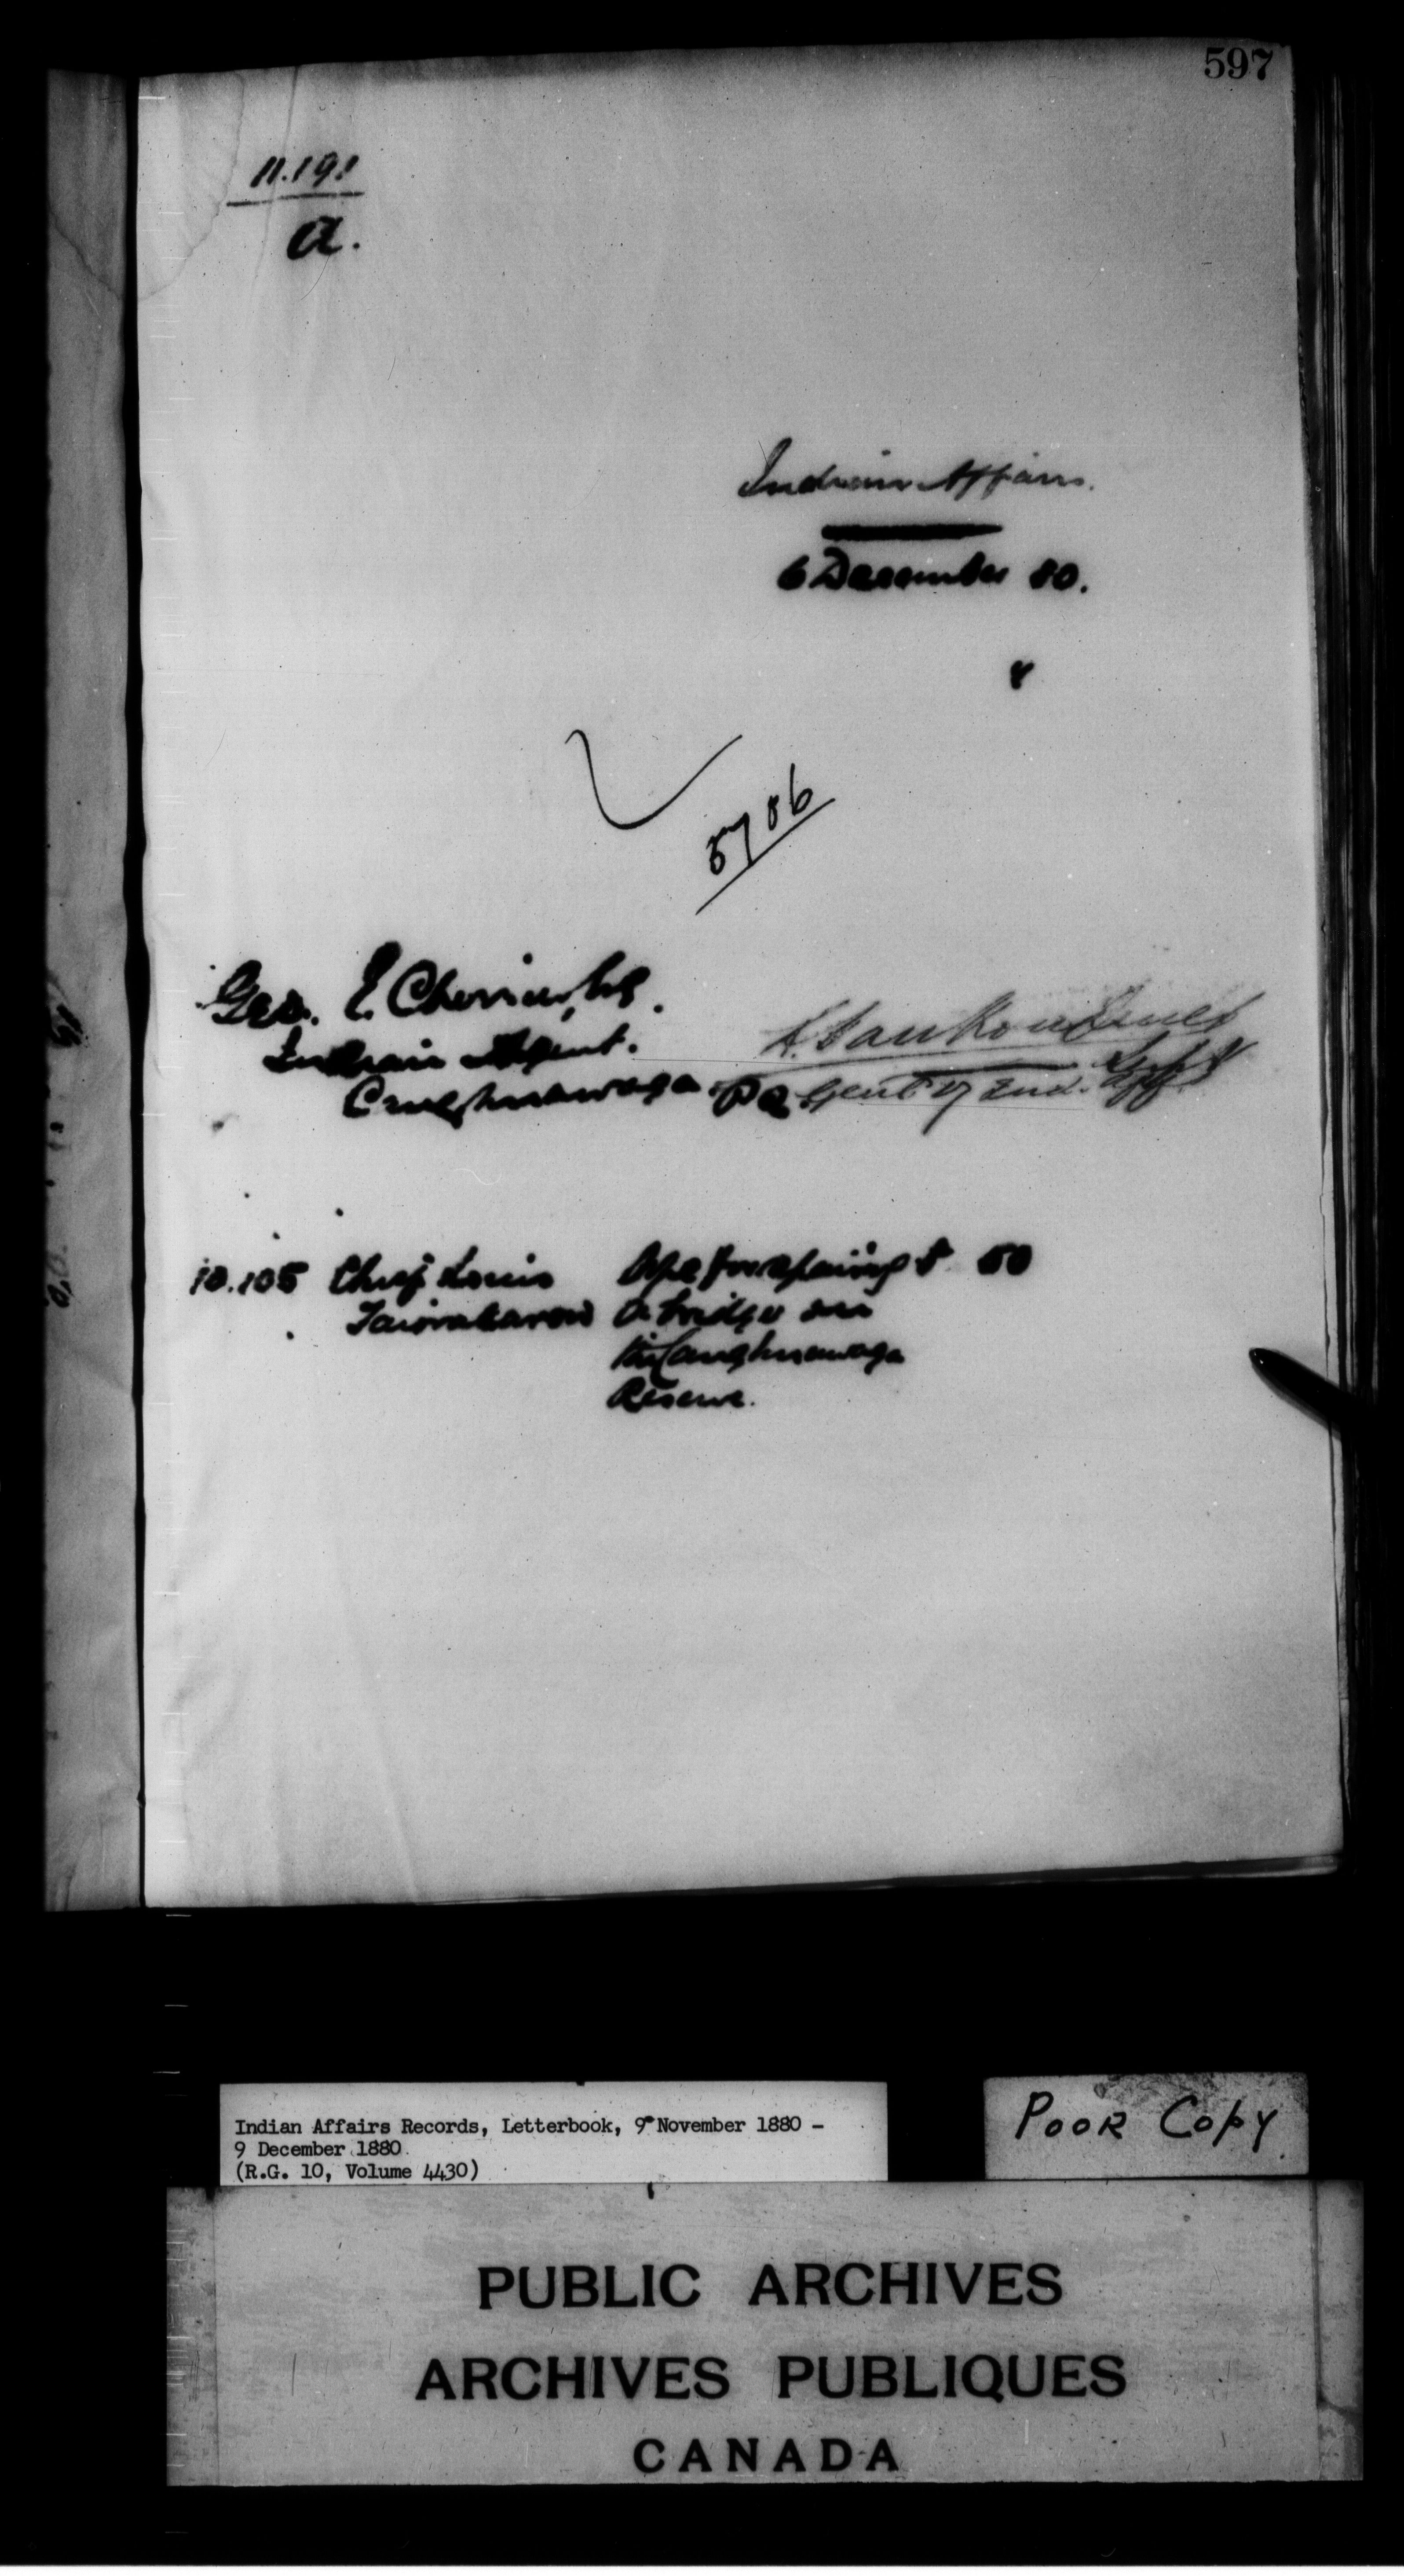 597
11.191
a.
Indian Affairs.
6 December 80.
5706
Geo. E. Cherrier, Esq.
Indian Agent.
Caughnawaga P.Q.
L. VanKoughnet
Depy Supt Genl of Ind. Affs
10.105 Chief Louis
for repairing $ 50
a bridge on
the Caughnawaga
Reserve.
Indian Affairs Records, Letterbook, 9 November 1880 -
9 December 1880
(R.G. 10, Volume 4430)
POOR COPY
PUBLIC ARCHIVES
ARCHIVES PUBLIQUES
CANADA